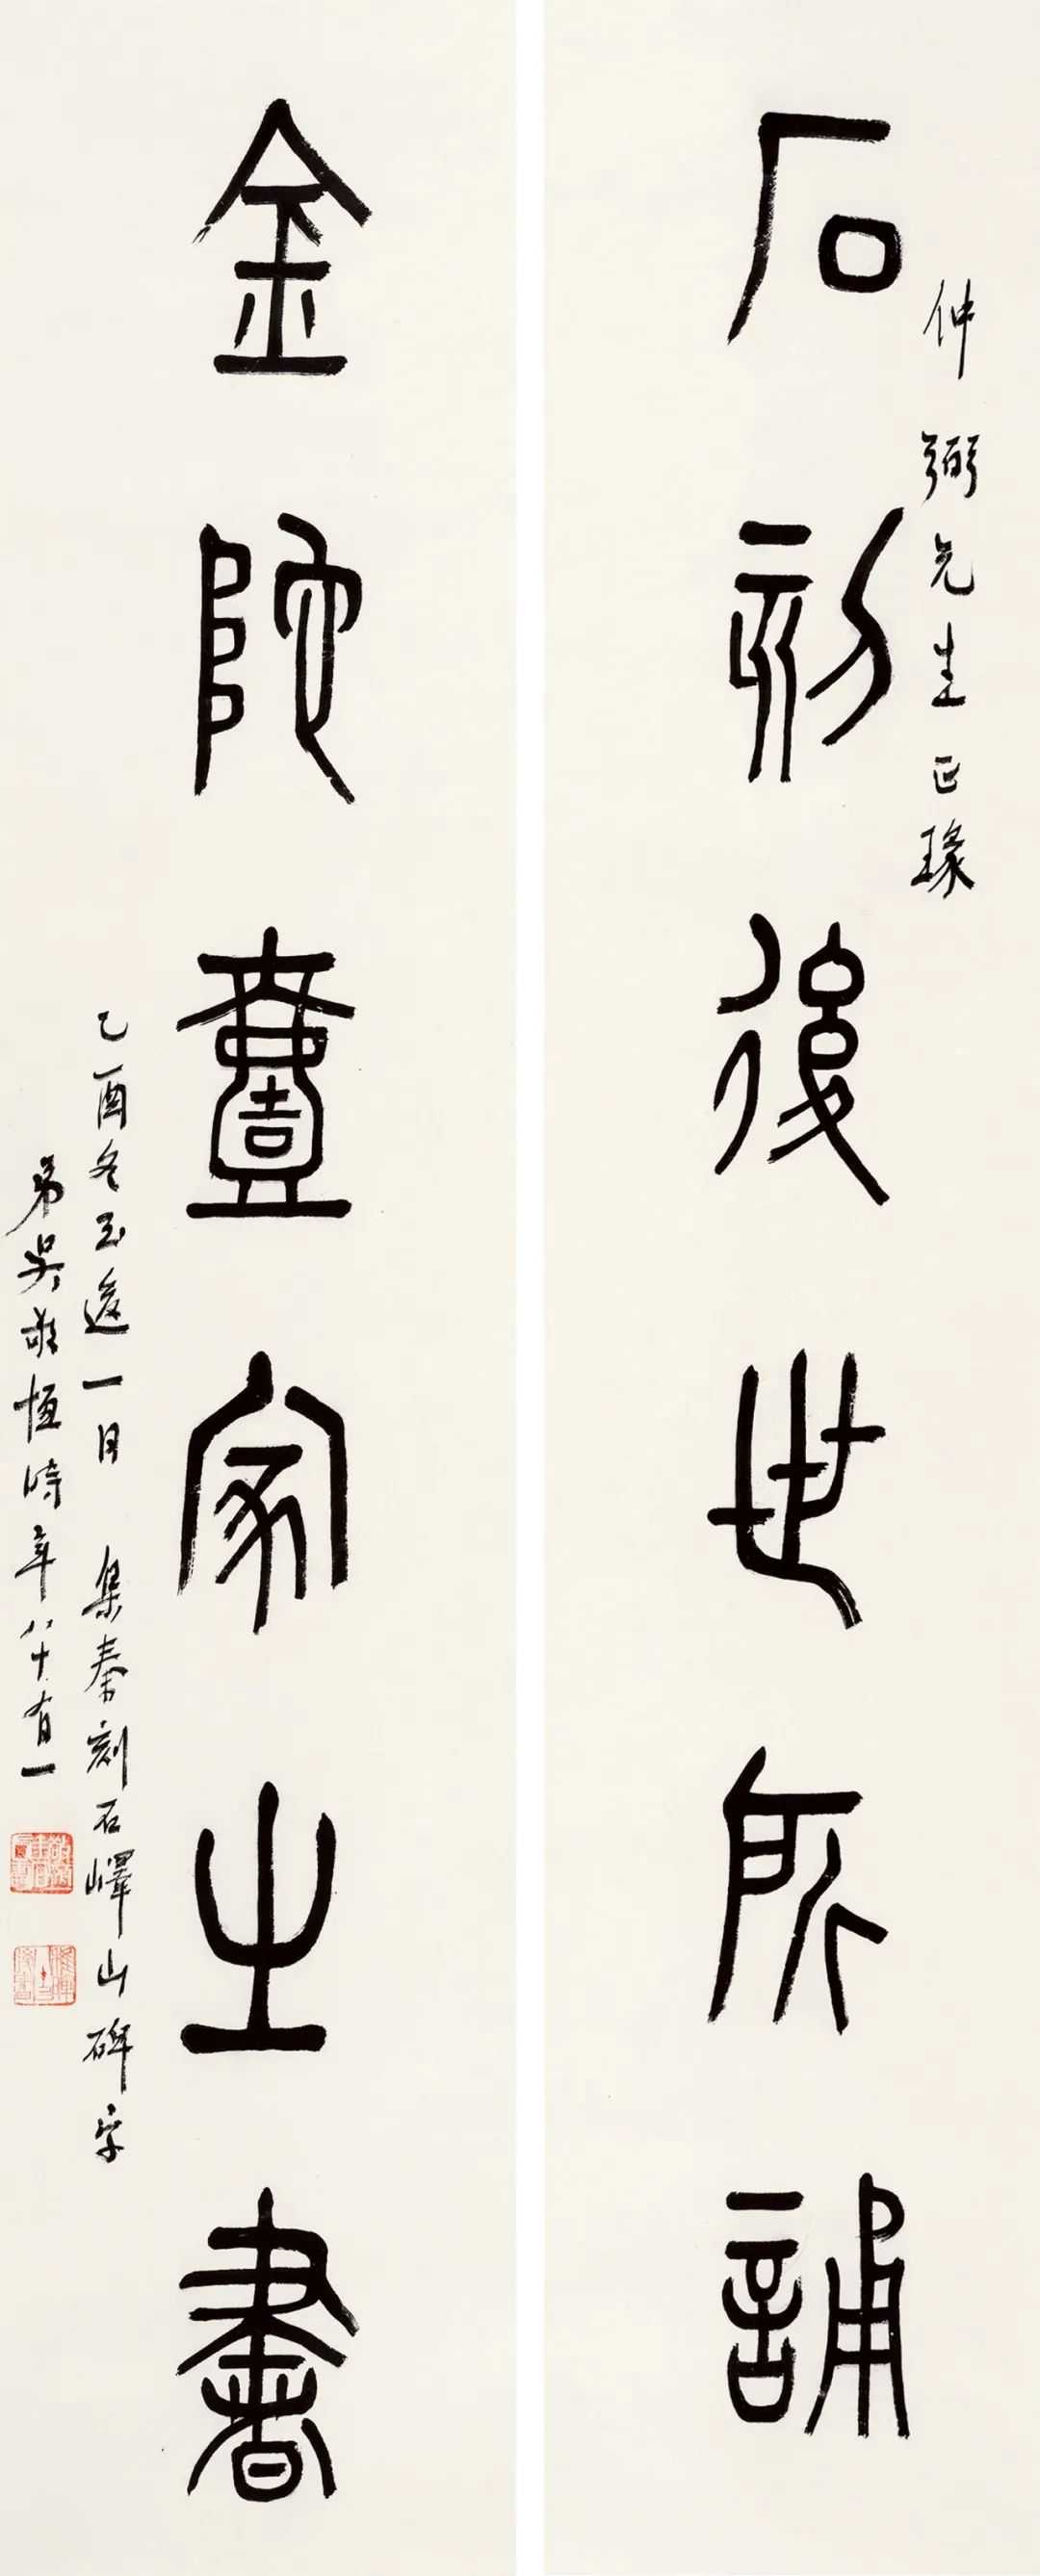 仲弼先生正瑑
石刻後世所誦
金阤壹家之書
乙酉冬至後一日 集秦刻石嶧山碑字
弟吳敬恆時年八十有一